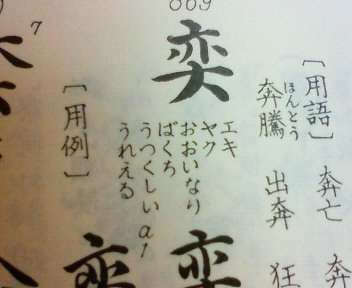 〔用語〕 奔亡 奔
ほんとう
奔騰 出奔 狂
009
奕
エキ
ヤク
おおいなり
ばくち
うつくしい a1
うれえる
奕
〔用例〕
7